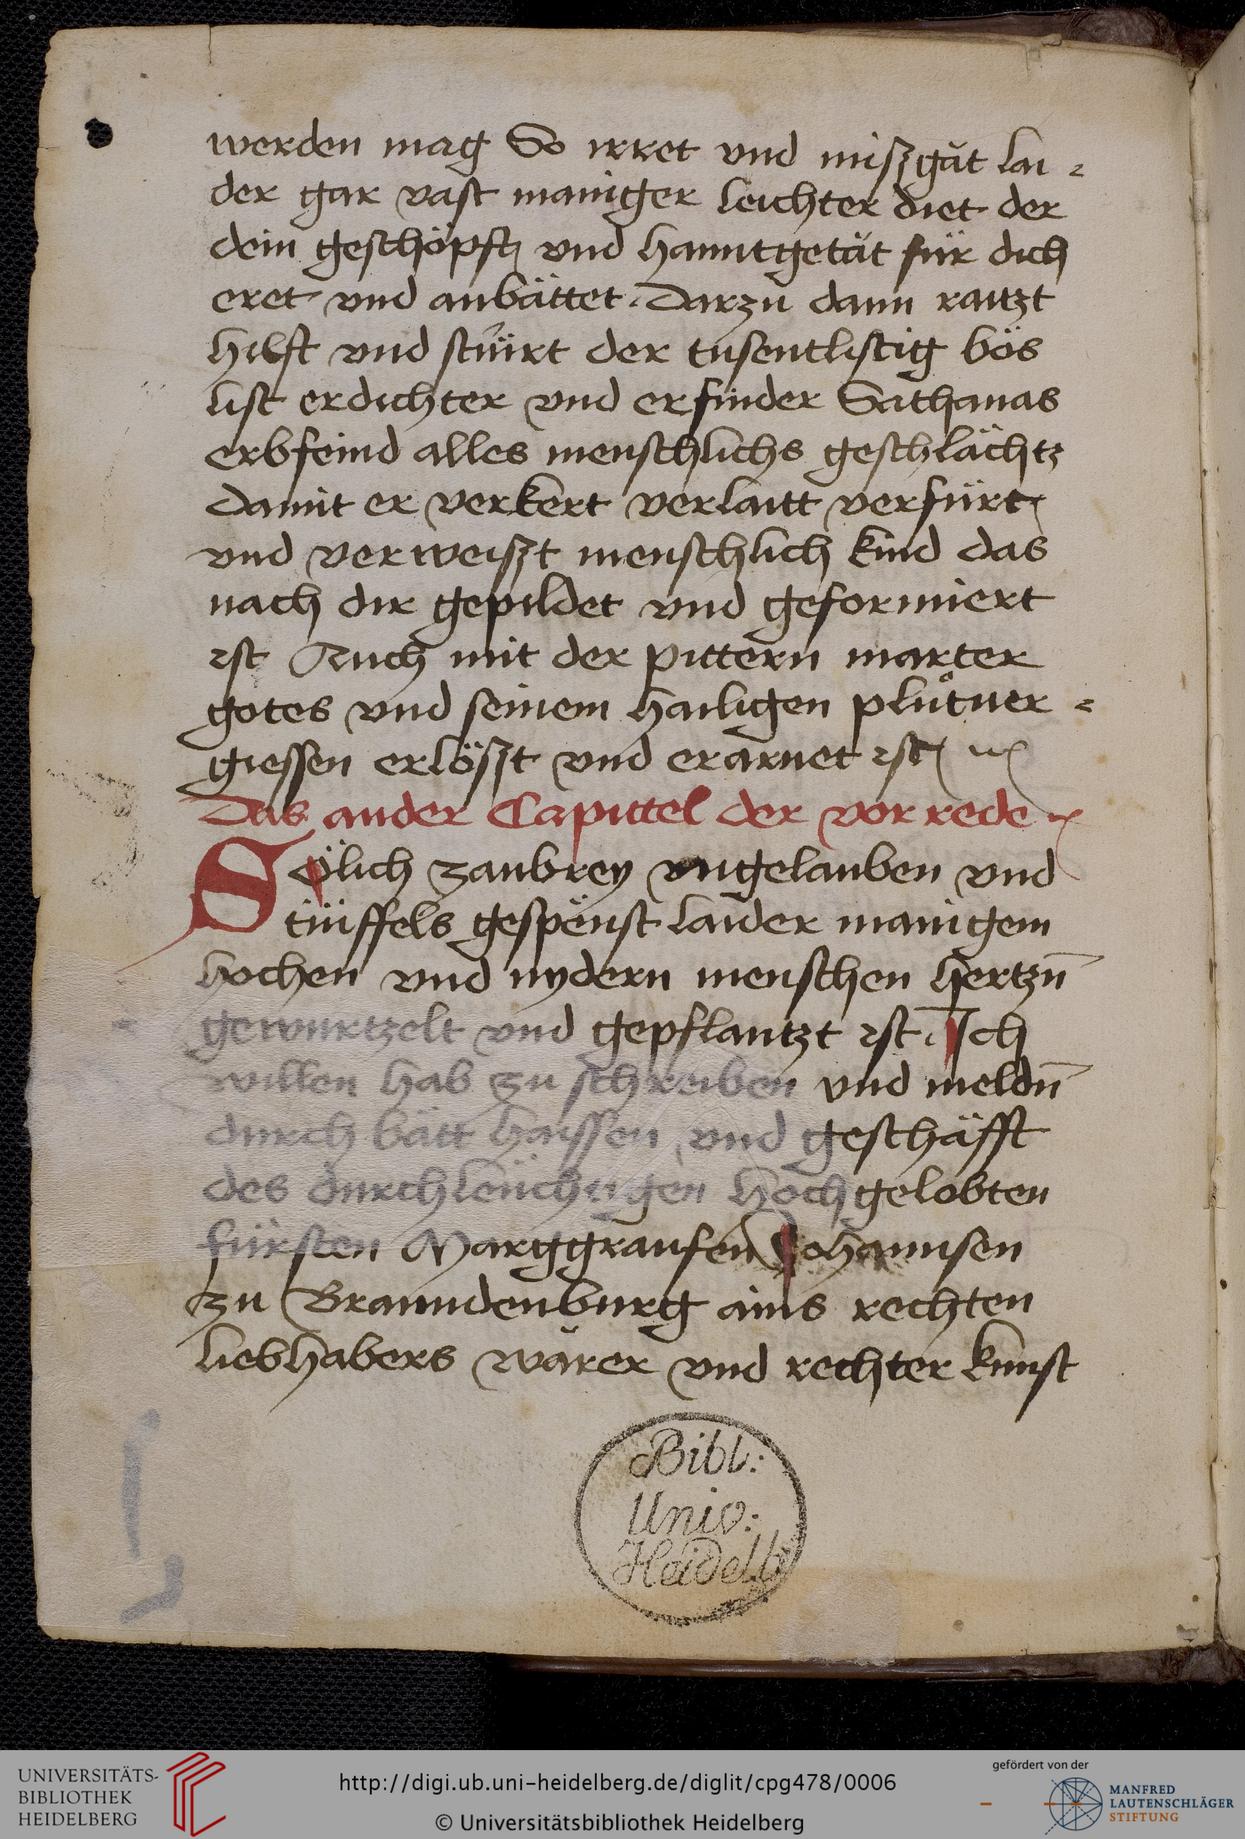 werden mag So irret vnd miszgăt lai -
der gar vast maniger leichter diet der
dein geschöpft vnd hanntgetät für dich
eret vnd anbättet. Darzu dann raitzt
hilft vnd stüirt der tusentlistig bös
list erdichter vnd erfinder Sathanas
erbfeind alles menschlichs geschlächtz
damit er verkert verlaitt verfürt
vnd verweiszt menschlich kind das
nach dir gepildet vnd geformiert
ist Auch mit der pittern marter
gotes vnd seinem hailigen plůtuer -
giessen erlöszt vnd erarnet ist
Das ander Capittel der vor rede
Sölich zaubrey vngelauben vnd
tüffels gespënst laider manigem
hochen vnd nydern menschen hertzn̄
gewurtzelt vnd gepflantzt ist. Ich
willen hab zu schreiben vnd meldn̄
durch bätt haissen vnd geschäfft
des durchleüchtigen hochgelobten
fürsten Marggraufen Johannsen
zu Branndenburg ains rechten
liebhabers wărer vnd rechter kunst
Bibl:
Univ:
Heidelb
UNIVERSITÄTS-
BIBLIOTHEK
HEIDELBERG
http://digi.ub.uni-heidelberg.de/diglit/cpg478/0006
© Universitätsbibliothek Heidelberg
gefördert von der
MANFRED
LAUTENSCHLÄGER
STIFTUNG